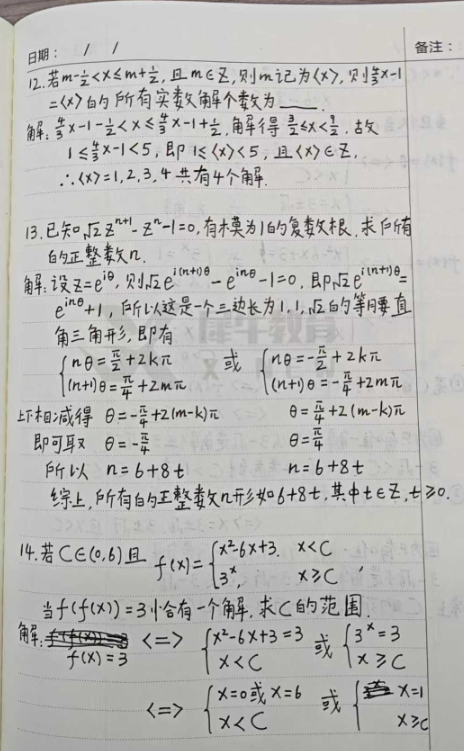 日期： / /
备注：
12.若m-½<x≤m+½,且m∈Z,则m记为⟨x⟩,则4/3x-1
=⟨x⟩的所有实数解个数为___
解:4/3x-1-½<x≤4/3x-1+½,解得3/2≤x<9/2.故
1≤4/3x-1<5,即1≤⟨x⟩<5,且⟨x⟩∈Z,
∴⟨x⟩=1,2,3,4共有4个解.
13.已知√2z^{n+1}-z^n-1=0,有模为1的复数根.求所有
的正整数n.
解:设z=e^{iθ},则√2e^{i(n+1)θ}-e^{inθ}-1=0,即√2e^{i(n+1)θ}=
e^{inθ}+1,所以这是一个三边长为1,1,√2的等腰直
角三角形,即有
{nθ=π/2+2kπ 或 {nθ=-π/2+2kπ
(n+1)θ=π/4+2mπ (n+1)θ=-π/4+2mπ
上下相减得 θ=-π/4+2(m-k)π θ=π/4+2(m-k)π
即可取 θ=-π/4 θ=π/4
所以 n=6+8t n=6+8t
综上,所有的正整数n形如6+8t,其中t∈Z,t≥0.
14.若C∈(0,6)且 f(x)={x²-6x+3, x<C
3^x x≥C ,
当f(f(x))=3恰有一个解.求C的范围.
解: f(x)=3 <=> {x²-6x+3=3 或 {3^x=3
x<C x≥C
<=> {x=0或x=6 或 {x=1
x<C x≥C